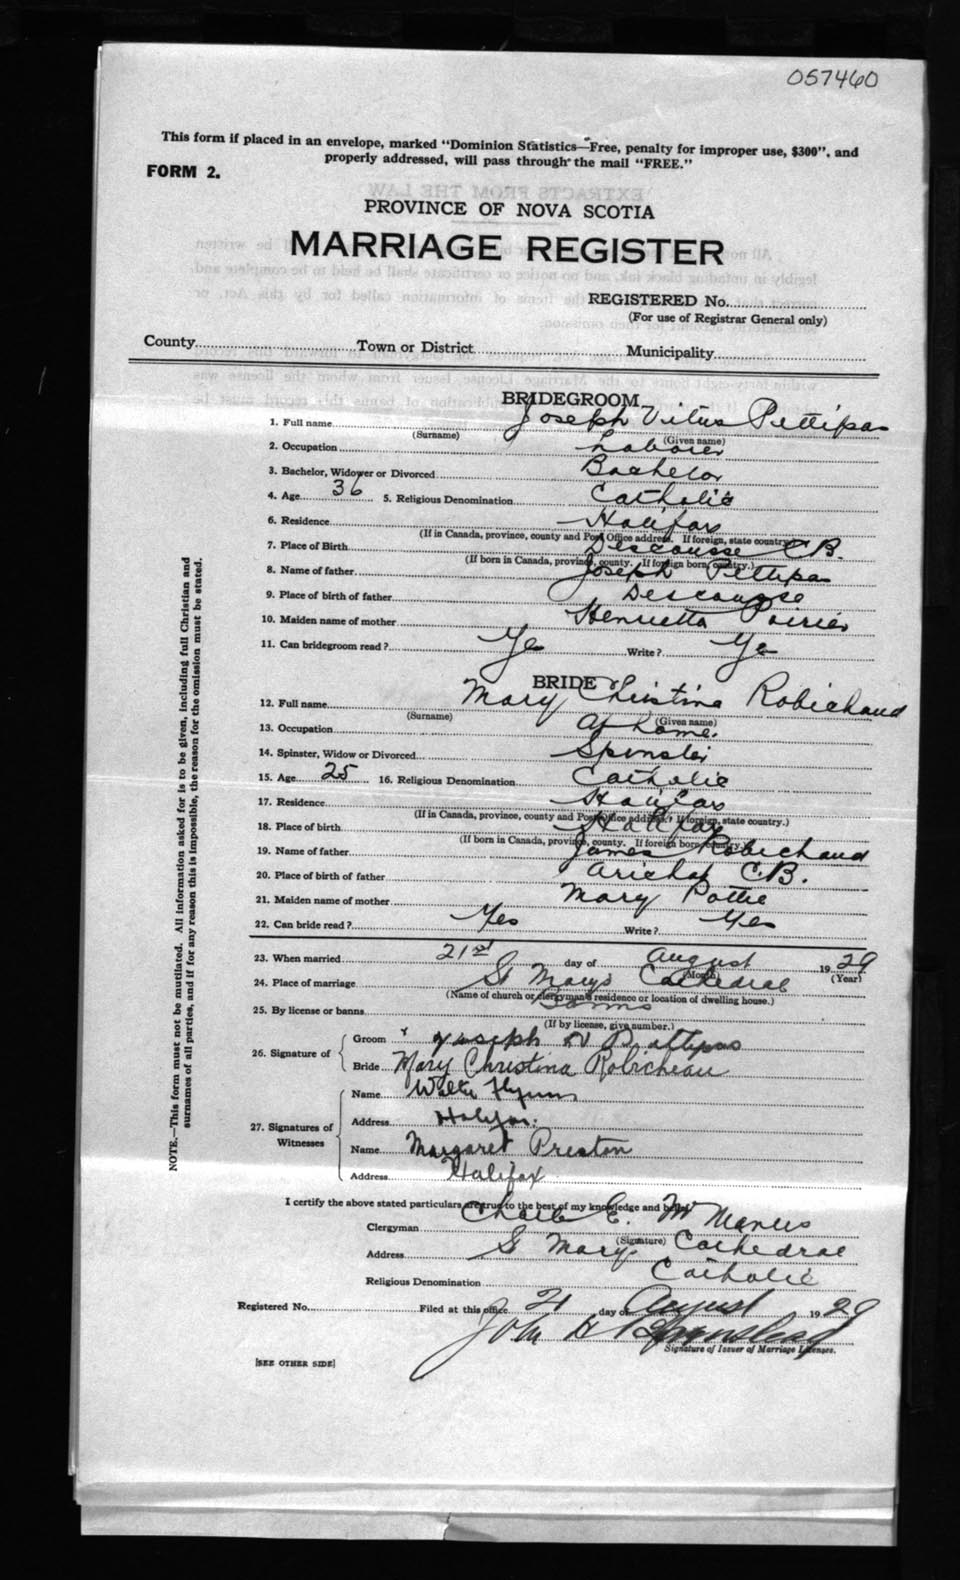 057460
This form if placed in an envelope, marked "Dominion Statistics—Free, penalty for improper use, $300", and
properly addressed, will pass through the mail "FREE."
FORM 2.
PROVINCE OF NOVA SCOTIA
MARRIAGE REGISTER
REGISTERED No.
(For use of Registrar General only)
County Town or District Municipality
BRIDEGROOM
1. Full name Joseph Vitus Pettipas
(Surname) (Given name)
2. Occupation Laborer
3. Bachelor, Widower or Divorced Bachelor
4. Age 36 5. Religious Denomination Catholic
6. Residence Halifax
(If in Canada, province, county and Post Office address. If foreign, state country.)
7. Place of Birth Descousse C.B.
(If born in Canada, province, county. If foreign born, country.)
8. Name of father Joseph Pettipas
9. Place of birth of father Descousse
10. Maiden name of mother Henrietta Poirier
11. Can bridegroom read? Yes Write? Yes
BRIDE
12. Full name Mary Christina Robichaud
(Surname) (Given name)
13. Occupation At home.
14. Spinster, Widow or Divorced Spinster
15. Age 25 16. Religious Denomination Catholic
17. Residence Halifax
(If in Canada, province, county and Post Office address. If foreign, state country.)
18. Place of birth Halifax
(If born in Canada, province, county. If foreign born, country.)
19. Name of father James Robichaud
20. Place of birth of father Arichat C.B.
21. Maiden name of mother Mary Pottie
22. Can bride read? Yes Write? Yes
23. When married 21st day of August 1929
(Month) (Year)
24. Place of marriage St Mary's Cathedral
(Name of church or clergyman's residence or location of dwelling house.)
25. By license or banns Banns
(If by license, give number.)
26. Signature of
Groom x Joseph V Pettipas
Bride Mary Christina Robicheau
27. Signatures of Witnesses
Name Walter Flynn
Address Halifax.
Name Margaret Preston
Address Halifax
I certify the above stated particulars are true to the best of my knowledge and belief.
Clergyman Charles E. McManus
(Signature)
Address St Mary's Cathedral
Religious Denomination Catholic
Registered No. Filed at this office 21 day of August 1929
John H
Signature of Issuer of Marriage Licenses.
[SEE OTHER SIDE]
NOTE.—This form must not be mutilated. All information asked for is to be given, including full Christian and
surnames of all parties, and if for any reason this is impossible, the reason for the omission must be stated.